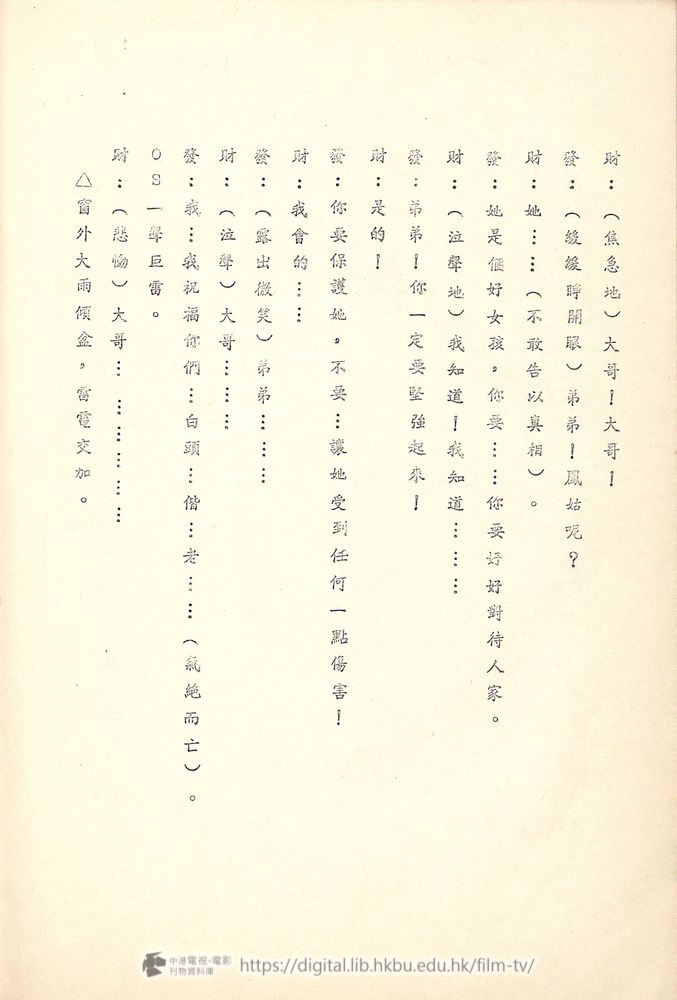 財：（焦急地）大哥！大哥！
發：（緩緩睜開眼）弟弟！鳳姑呢？
財：她……（不敢告以真相）。
發：她是個好女孩，你要……你要好好對待人家。
財：（泣聲地）我知道！我知道………
發：弟弟！你一定要堅強起來！
財：是的！
發：你要保護她，不要…讓她受到任何一點傷害！
財：我會的……
發：（露出微笑）弟弟………
財：（泣聲）大哥………
發：我…我祝福你們…白頭…偕…老……（氣絕而亡）。
OS一聲巨雷。
財：（悲慟）大哥… …………
△窗外大雨傾盆，雷電交加。
中港電視·電影
刊物資料庫
https://digital.lib.hkbu.edu.hk/film-tv/